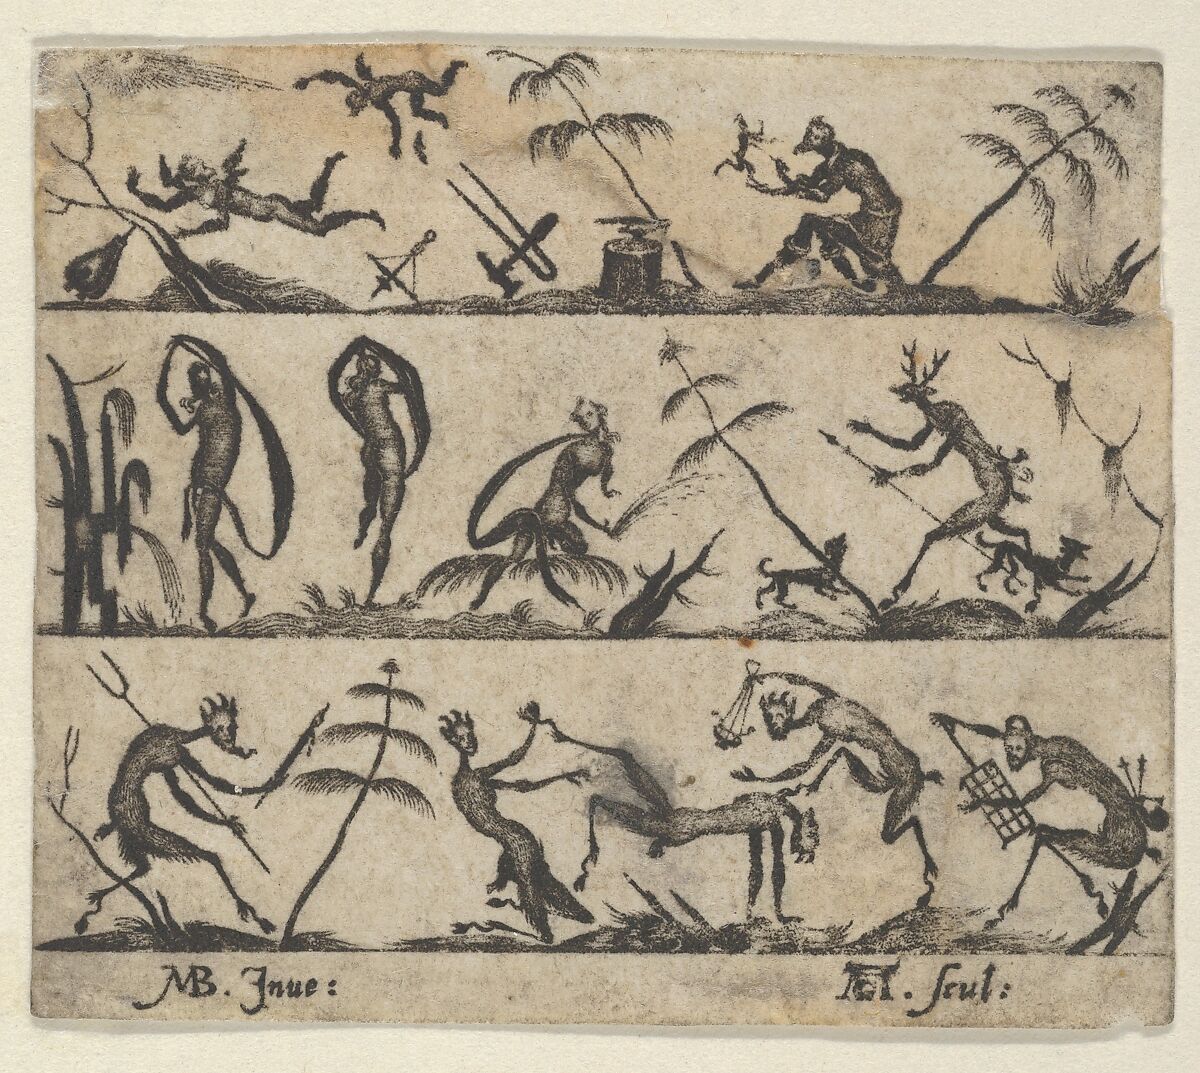 MB. Inue:
AH. scul: